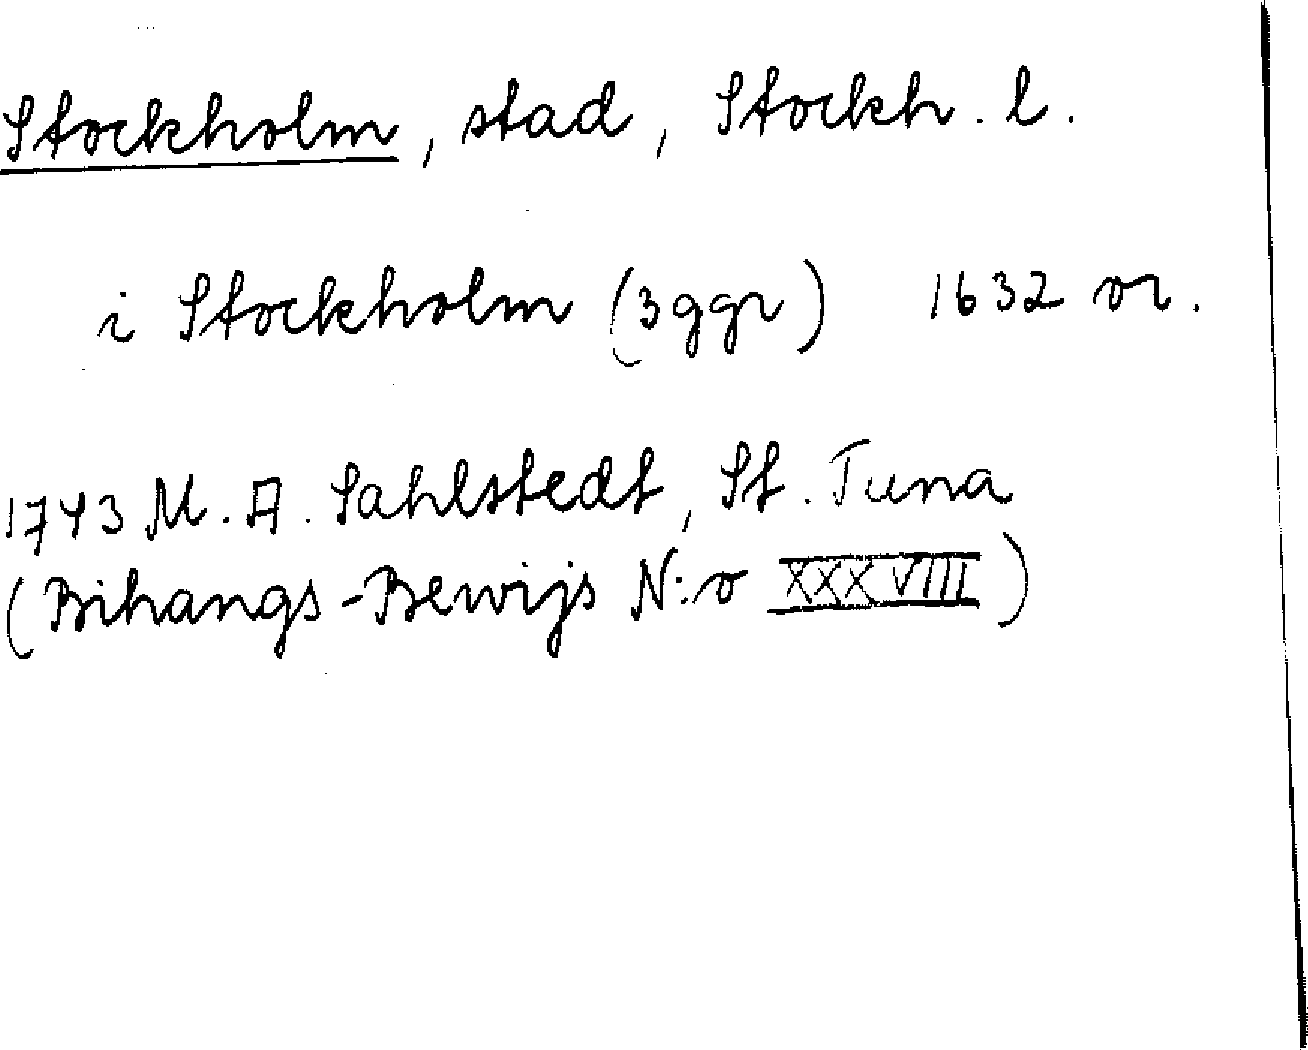 Stockholm, stad, Stockh. l.
i Stockholm (3 ggr) 1632 or.
1743 M. A. Sahlstedt, St. Tuna
(Bihangs-Bewijs N:o XXXVIII)